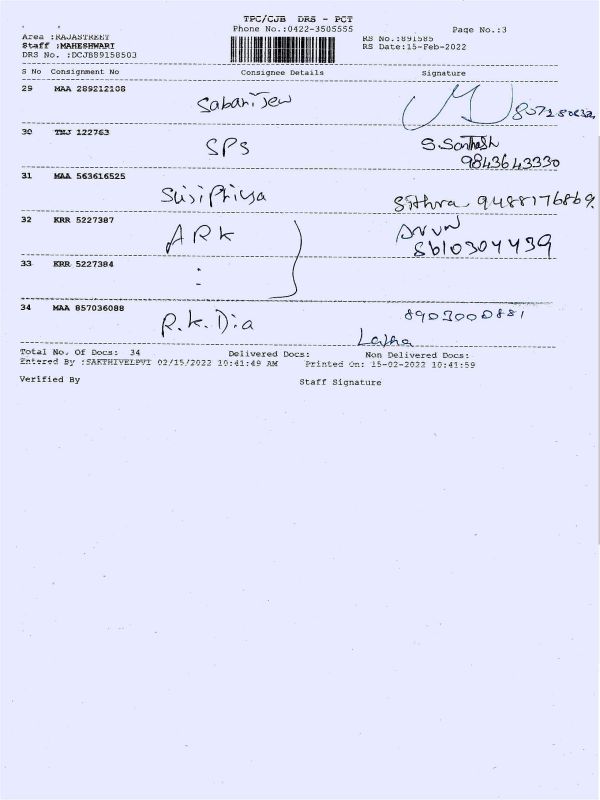 TPC/CJB DRS - PCT
Phone No.:0422-3505555 Page No.:3
Area :RAJASTREET RS No.:891585
Staff :MAHESHWARI RS Date:15-Feb-2022
DRS No. :DCJB89158503
S No Consignment No Consignee Details Signature
29 MAA 289212108 Sabari Jew
30 TMJ 122763 SPS S. Santhosh
9843643330
31 MAA 563616525 Susi Phiya Sithra 9488176869.
32 KRR 5227387 ARK Arun
8610304439
33 KRR 5227384
34 MAA 857036088 R.K. Dia
Latha
Total No. Of Docs: 34 Delivered Docs: Non Delivered Docs:
Entered By :SAKTHIVELPVT 02/15/2022 10:41:49 AM Printed On: 15-02-2022 10:41:59
Verified By Staff Signature